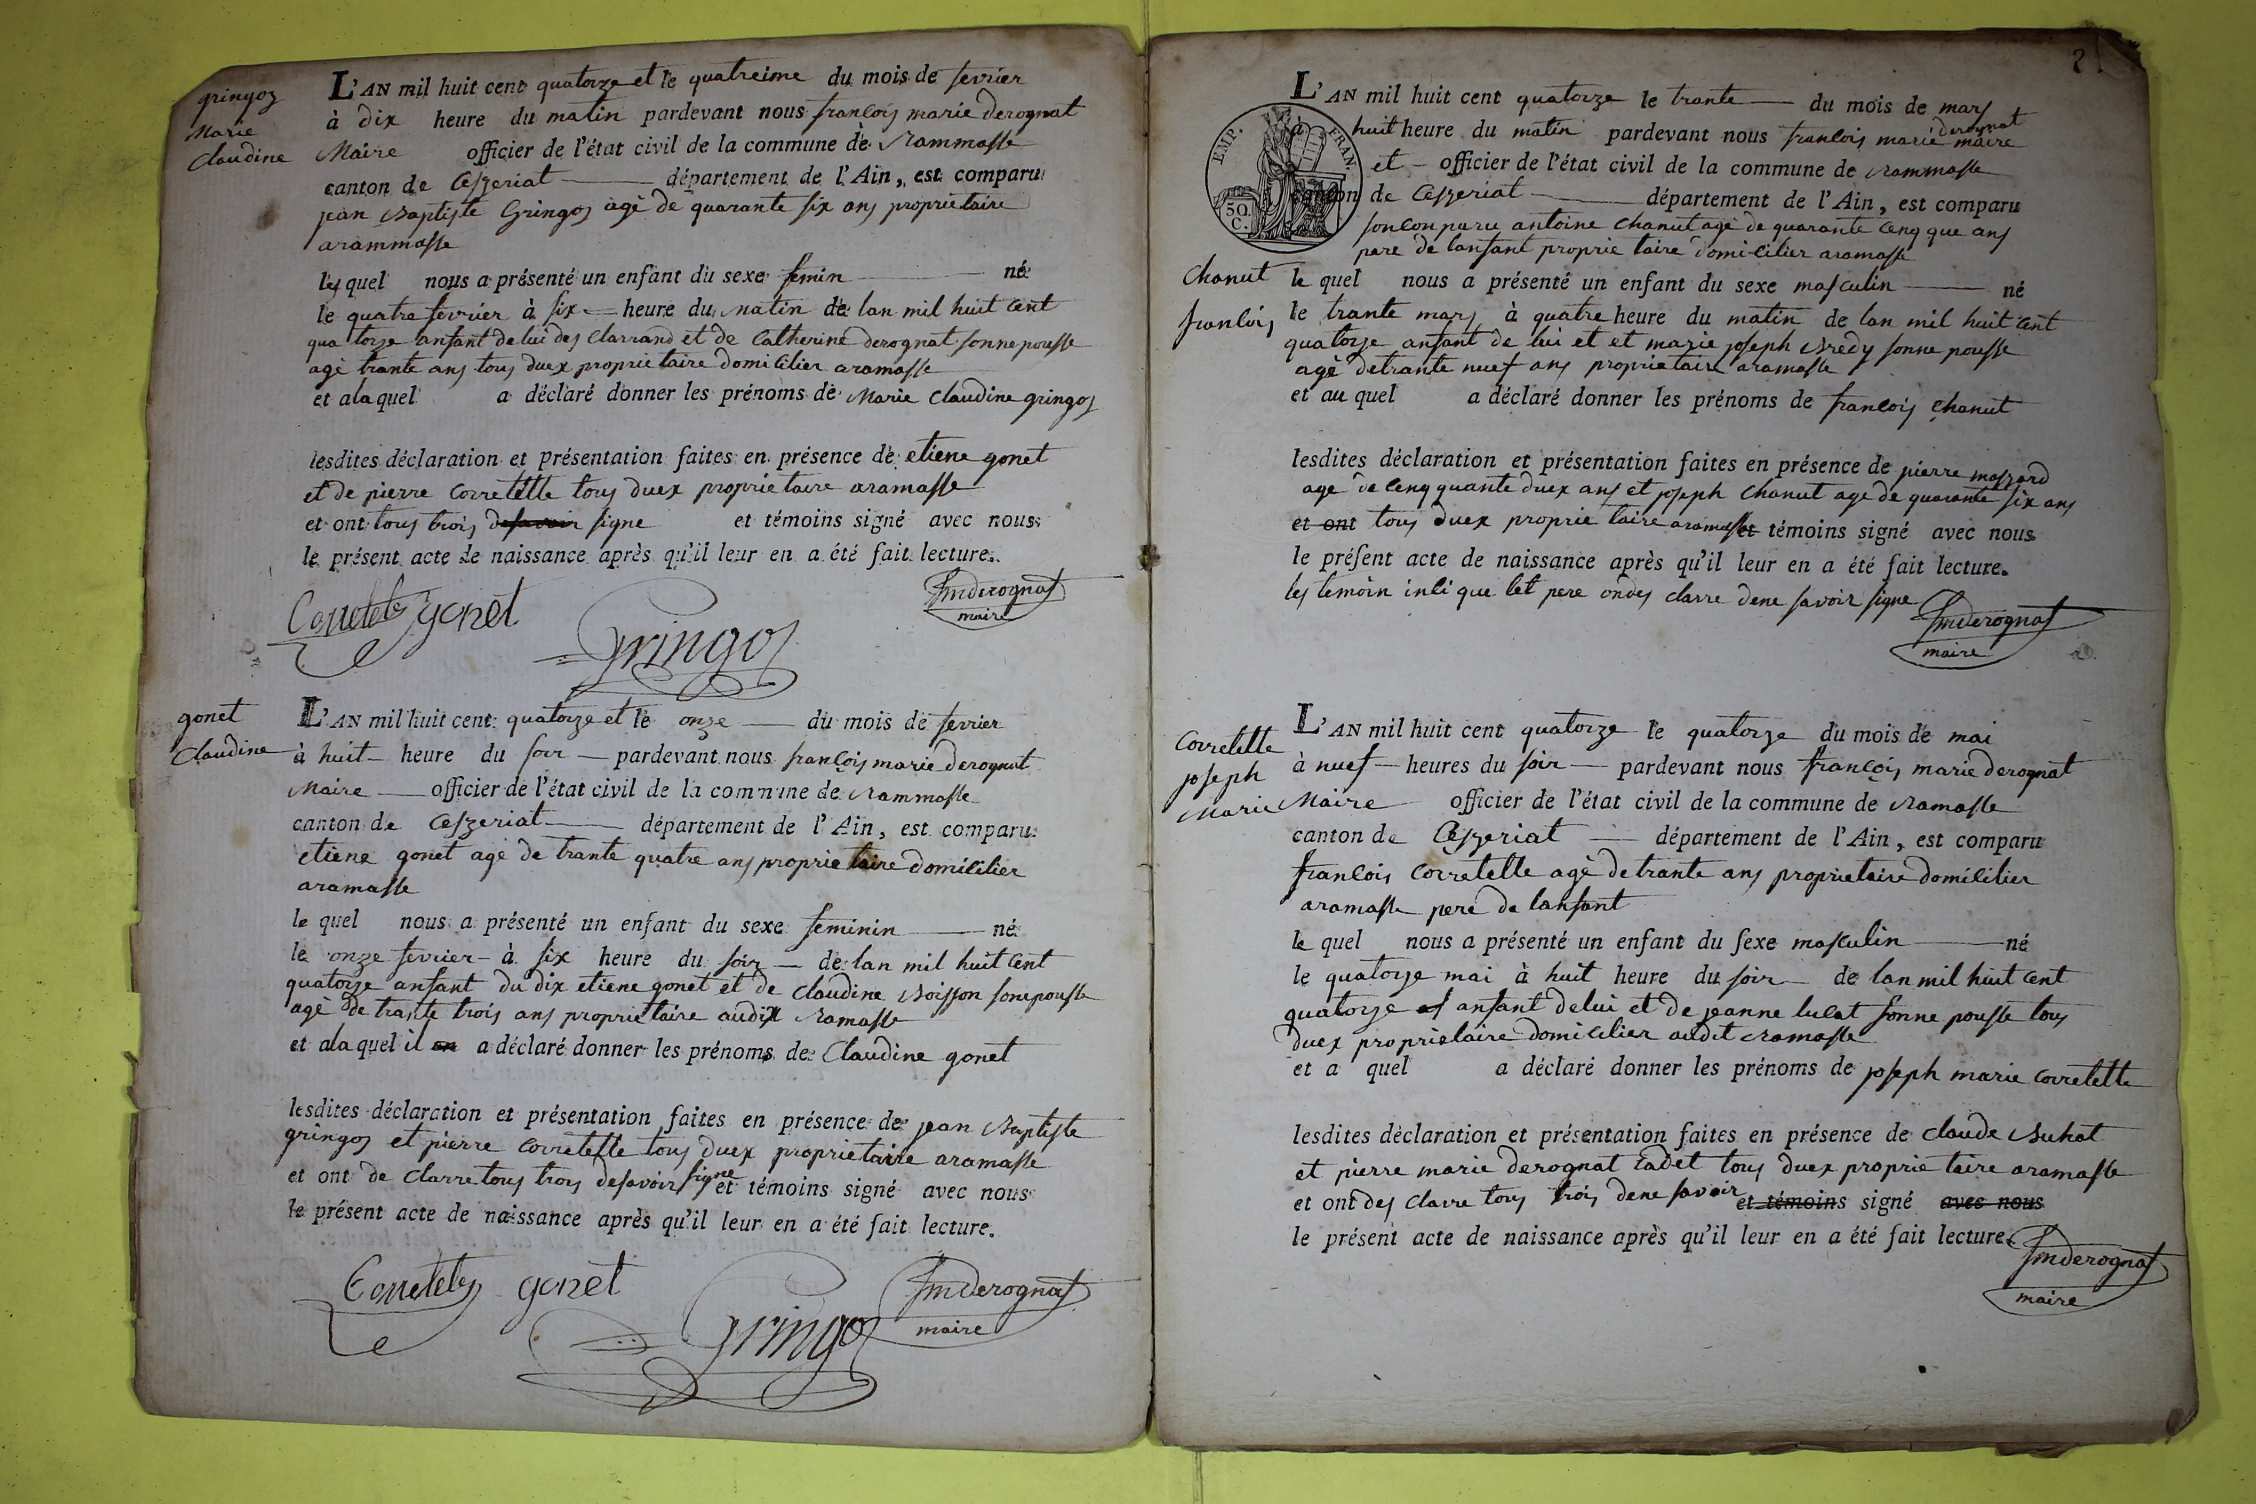 gringoz
Marie
Claudine
L'AN mil huit cent quatorze et le quatreime du mois de fevrier
à dix heure du matin pardevant nous francois marie derognat
Maire officier de l'état civil de la commune de rammasse
canton de Ceszeriat département de l'Ain, est comparu
jean Baptiste Gringoz agè de quarante six ans proprietaire
arammasse
les quel nous a présenté un enfant du sexe femin né
le quatre fevrier à six heure du matin de lan mil huit cent
quatorze anfant de lui des Clarrand et de Catherine derognat sonne pousse
agè trante ans tous duex proprietaire domicilier aramasse
et ala quel a déclaré donner les prénoms de Marie Claudine gringoz
lesdites déclaration et présentation faites en présence de etiene gonet
et de pierre Corretelle tous duex proprietaire aramasse
et ont tous trois desavoir signe et témoins signé avec nous
le présent acte de naissance après qu'il leur en a été fait lecture.
Corretet gonet fmderognat
maire
Gringoz
gonet
Claudine
L'AN mil huit cent quatorze et le onze du mois de fevrier
à huit heure du soir pardevant nous françois marie derognat
Maire officier de l'état civil de la commune de rammasse
canton de Ceszeriat département de l'Ain, est comparu
etiene gonet agè de trante quatre ans proprietaire domicilier
aramasse
le quel nous a présenté un enfant du sexe feminin né
le onze fevrier à six heure du soir de lan mil huit cent
quatorze anfant du dix etiene gonet et de Claudine Boisson sonepousse
agè de trante trois ans proprietaire audix ramasse
et ala quel il en a déclaré donner les prénoms de Claudine gonet
lesdites déclaration et présentation faites en présence de jean Baptiste
gringoz et pierre Corretelle tous duex proprietaire aramasse
et ont de Clarre tous trois desavoir signe et témoins signé avec nous
le présent acte de naissance après qu'il leur en a été fait lecture.
Corretet gonet fmderognat
Gringoz maire
2
EMP. FRAN.
50
C.
L'AN mil huit cent quatorze le trante du mois de mars
à huit heure du matin pardevant nous francois marie derognat maire
et officier de l'état civil de la commune de rammasse
canton de Ceszeriat département de l'Ain, est comparu
son conparu antoine Chanut agè de quarante cenq que ans
pere de lanfant proprietaire domicilier aramasse
Chanut
francois
le quel nous a présenté un enfant du sexe masculin né
le trante mars à quatre heure du matin de lan mil huit cent
quatorze anfant de lui et et marie joseph Bredy sonne pousse
agè de trante nuef ans proprietaire aramasse
et au quel a déclaré donner les prénoms de francois Chanut
lesdites déclaration et présentation faites en présence de pierre mossard
age de cenq quante duex ans et joseph Chanut age de quarante six ans
et ont tous duex proprietaire aramasse et témoins signé avec nous
le présent acte de naissance après qu'il leur en a été fait lecture.
les temoin inli que let pere ondes clarre dene savoir signe
fmderognat
maire
Corretelle
joseph
Marie
L'AN mil huit cent quatorze le quatorze du mois de mai
à nuef heures du soir pardevant nous françois marie derognat
Maire officier de l'état civil de la commune de ramasse
canton de Ceszeriat département de l'Ain, est comparu
francois Corretelle agè de trante ans proprietaire domicilier
aramasse pere de lanfant
le quel nous a présenté un enfant du sexe masculin né
le quatorze mai à huit heure du soir de lan mil huit cent
quatorze anfant de lui et de jeanne lucat sonne pousse tous
duex proprietaire domicilier audit ramasse
et a quel a déclaré donner les prénoms de joseph marie Corretelle
lesdites déclaration et présentation faites en présence de Claude Buhot
et pierre marie derognat Cadet tous duex proprietaire aramasse
et ont des clarre tous trois dene savoir et témoins signé avec nous
le présent acte de naissance après qu'il leur en a été fait lecture.
fmderognat
maire